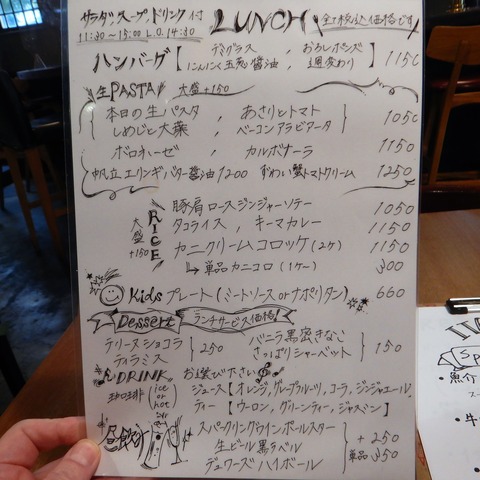 サラダ、スープ、ドリンク付 LUNCH 全て税込価格です
11:30~15:00 L.O.14:30
ハンバーグ【デミグラス、おろしポンズ 1150
にんにく五葱醤油、週変わり】
生PASTA 大盛+150
本日の生パスタ、あさりとトマト
しめじと大葉、ベーコンアラビアータ 1050
ボロネーゼ、カルボナーラ 1150
帆立エリンギバター醤油 1200 ずわい蟹トマトクリーム 1250
RICE 大盛+150
豚肩ロースジンジャーソテー 1050
タコライス、キーマカレー 1150
カニクリームコロッケ(2ヶ) 1150
↳単品カニコロ(1ケ~) 300
Kids プレート(ミートソース or ナポリタン) 660
Dessert ランチサービス価格!
テリーヌショコラ
ティラミス 250
バニラ黒蜜きなこ
さっぱりシャーベット 150
DRINK お選び下さい
珈琲(ice or hot) ジュース【オレンジ、グレープフルーツ、コーラ、ジンジャエール】
ティー【ウーロン、グリーンティー、ジャスミン】
昼飲み
スパークリングワインポールスター
生ビール黒ラベル +250
デュワーズハイボール 単品350
Sp
・魚介
・牛